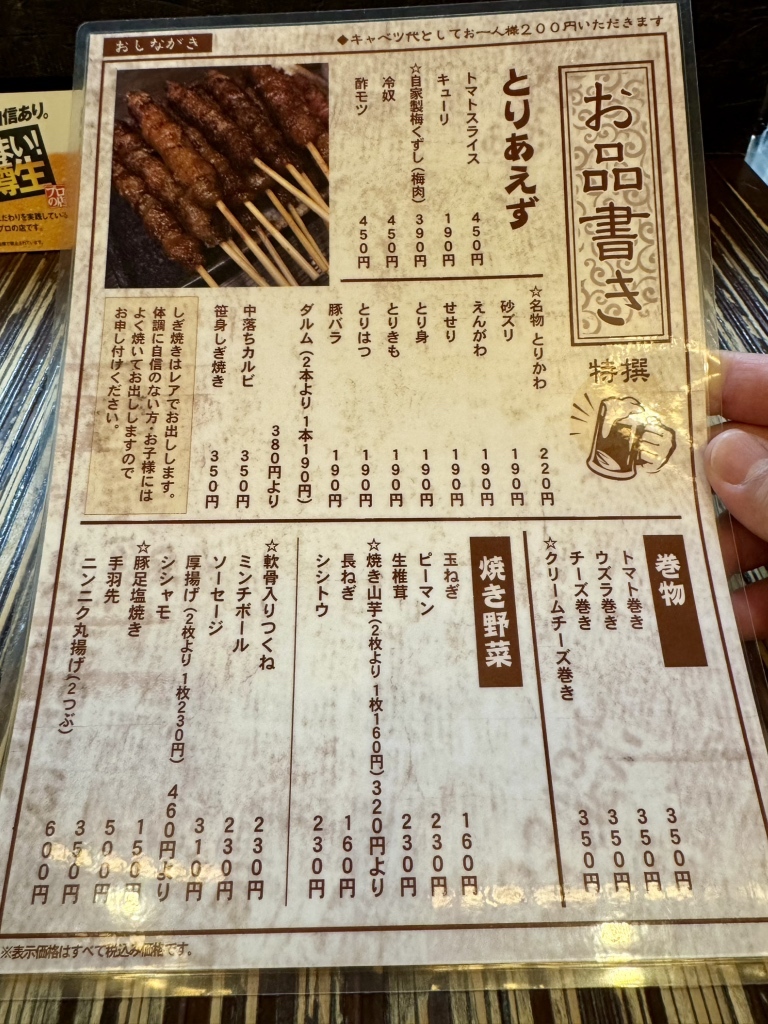 おしながき
◆キャベツ代としてお一人様200円いただきます
お品書き
特撰
とりあえず
トマトスライス 450円
キューリ 190円
☆自家製梅くずし(梅肉) 390円
冷奴 450円
酢モツ 450円
☆名物 とりかわ 220円
砂ズリ 190円
えんがわ 190円
せせり 190円
とり身 190円
とりきも 190円
とりはつ 190円
豚バラ 190円
ダルム(2本より 1本190円) 380円より
中落ちカルビ 350円
笹身しぎ焼き 350円
しぎ焼きはレアでお出しします。
体調に自信のない方・お子様には
よく焼いてお出ししますので
お申し付けください。
巻物
トマト巻き 350円
ウズラ巻き 350円
チーズ巻き 350円
☆クリームチーズ巻き 350円
焼き野菜
玉ねぎ 160円
ピーマン 230円
生椎茸 230円
☆焼き山芋(2枚より 1枚160円) 320円より
長ねぎ 160円
シシトウ 230円
☆軟骨入りつくね 230円
ミンチボール 230円
ソーセージ 310円
厚揚げ(2枚より 1枚230円) 460円より
シシャモ 150円
☆豚足塩焼き 500円
手羽先 350円
ニンニク丸揚げ(2つぶ) 600円
※表示価格はすべて税込み価格です。
信あり。
まい!
樽生
プロの店
だわりを実践している
プロの店です。